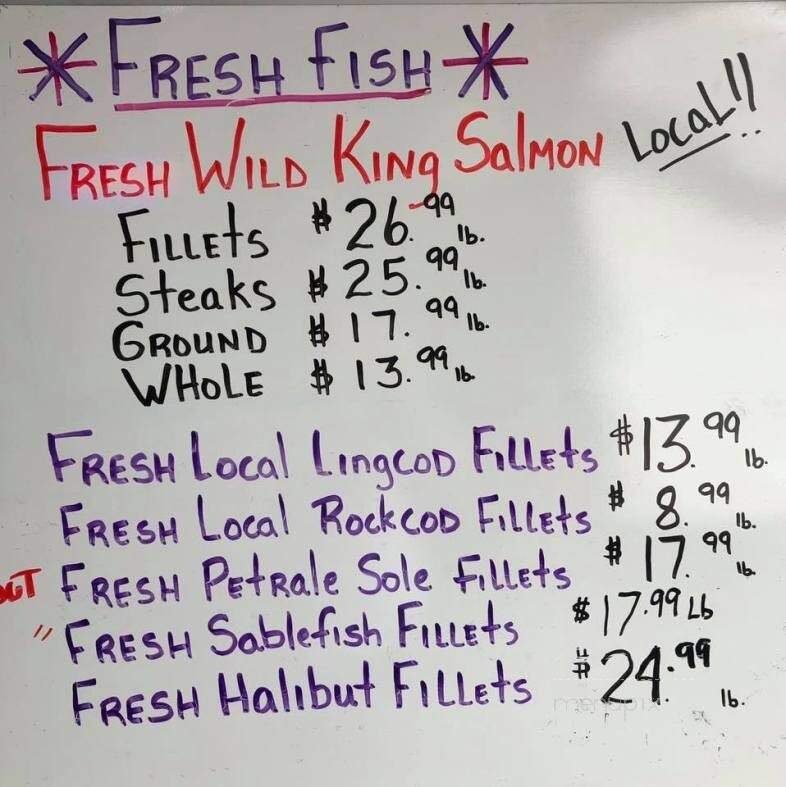 * FRESH FISH *
FRESH WILD KING SALMON LOCAL!!
FILLETS $26.99 lb.
Steaks $25.99 lb.
GROUND $17.99 lb.
WHOLE $13.99 lb.
FRESH LOCAL LINGCOD FILLETS $13.99 lb.
FRESH LOCAL ROCKCOD FILLETS $8.99 lb.
FRESH PETRALE SOLE FILLETS $17.99 lb.
" FRESH SABLEFISH FILLETS $17.99 Lb
FRESH HALIBUT FILLETS $24.99 lb.